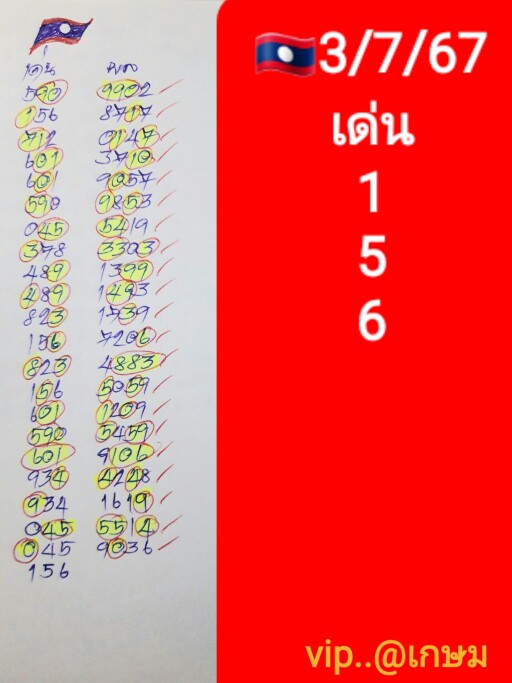 เด่น ผล
590 9902
156 8717
712 0147
601 3710
601 9057
590 9853
045 5419
378 3303
489 1399
489 1493
823 1739
156 7206
823 4883
156 5059
601 1209
590 5459
601 9106
934 4248
934 1619
045 5514
045 9036
156
3/7/67
เด่น
1
5
6
vip..@เกษม